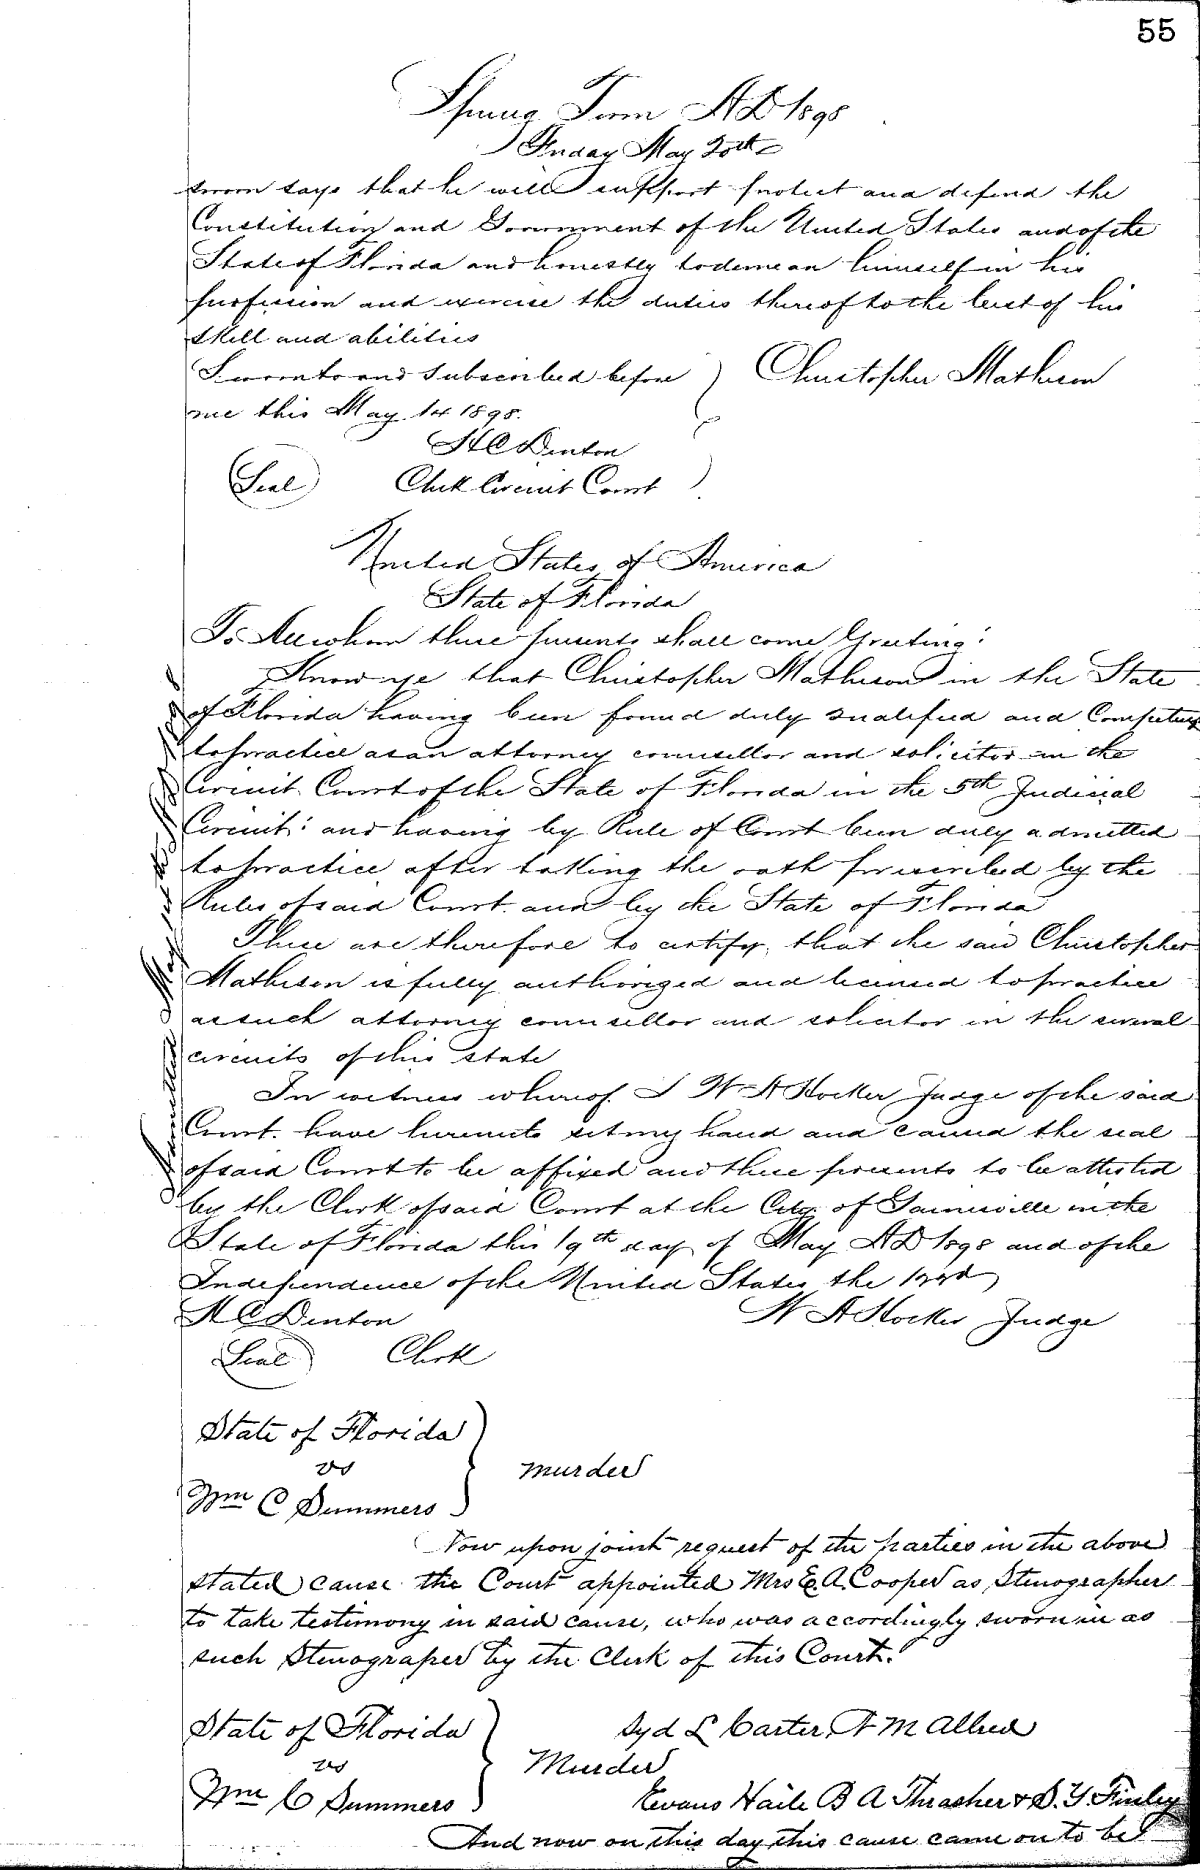 55
Spring Term A D 1898
Friday May 20th
sworn says that he will support protect and defend the
Constitution and Government of the United States and of the
State of Florida and honestly to demean himself in his
profession and exercise the duties thereof to the best of his
skill and abilities
Sworn to and subscribed before } Christopher Matheson
me this May 14 1898.
H C Denton
(Seal) Clerk Circuit Court
United States of America
State of Florida
To All whom these presents shall come Greeting:
Know ye that Christopher Matheson in the State
of Florida having been found duly qualified and Competent
to practice as an attorney counsellor and solicitor in the
Circuit Court of the State of Florida in the 5th Judicial
Circuit: and having by Rule of Court been duly admitted
to practice after taking the oath prescribed by the
Rules of said Court and by the State of Florida
These are therefore to certify, that the said Christopher
Matheson is fully authorized and licensed to practice
as such attorney counsellor and solicitor in the several
circuits of this state
In witness whereof I W A Hocker Judge of the said
Court have hereunto set my hand and caused the seal
of said Court to be affixed and these presents to be attested
by the Clerk of said Court at the City of Gainesville in the
State of Florida this 19th day of May A D 1898 and of the
Independence of the United States the
H C Denton W A Hocker Judge
(Seal) Clerk
Admitted May A D 1898
State of Florida
vs } murder
Wm C Summers
Now upon joint request of the parties in the above
stated cause the Court appointed Mrs E. A. Cooper as Stenographer
to take testimony in said cause, who was accordingly sworn in as
such Stenograper by the Clerk of this Court.
State of Florida } Syd L Carter, F M Allred
vs Murder
Wm C Summers Evans Haile B A Thrasher & S. Y. Finley
And now on this day this cause came on to be